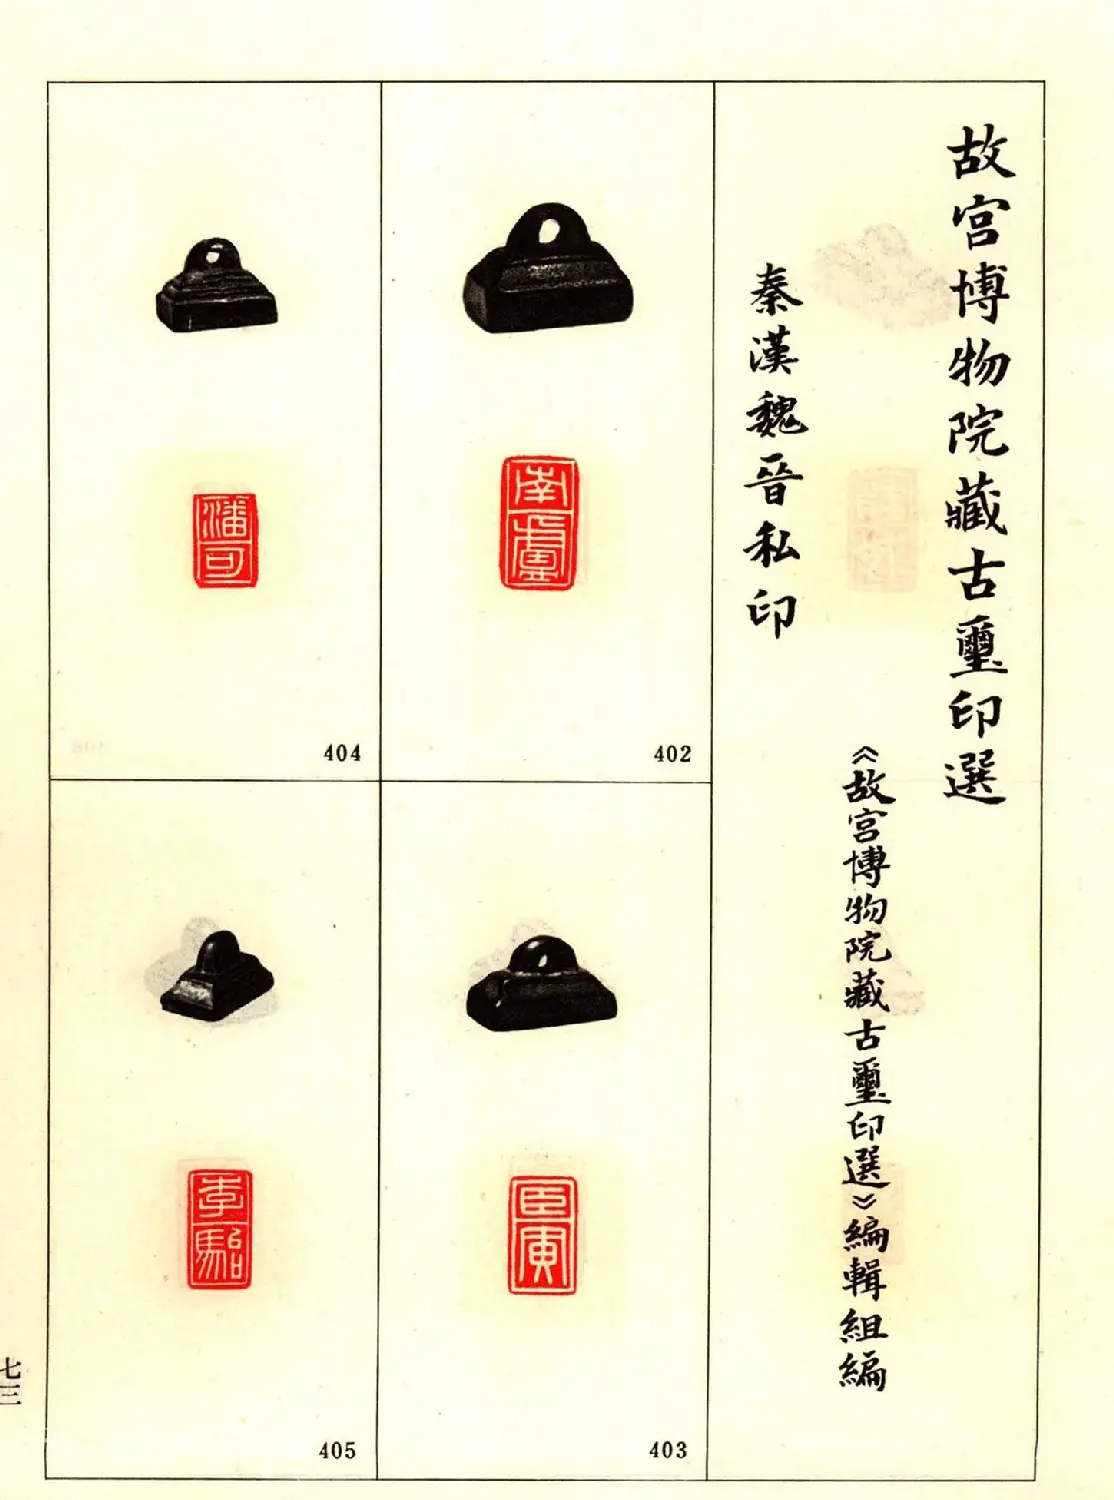 故宮博物院藏古璽印選
秦漢魏晉私印
《故宮博物院藏古璽印選》編輯組編
南盧
402
臣寅
403
潘可
404
李駘
405
七三